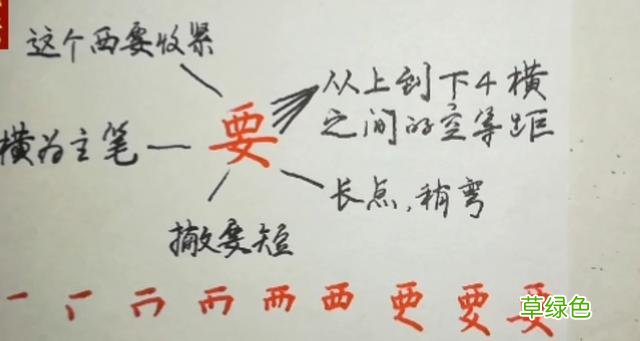 这个西要收紧
从上到下4横
之间的空等距
横为主笔
要
长点,稍弯
撇要短
西
要
草绿色